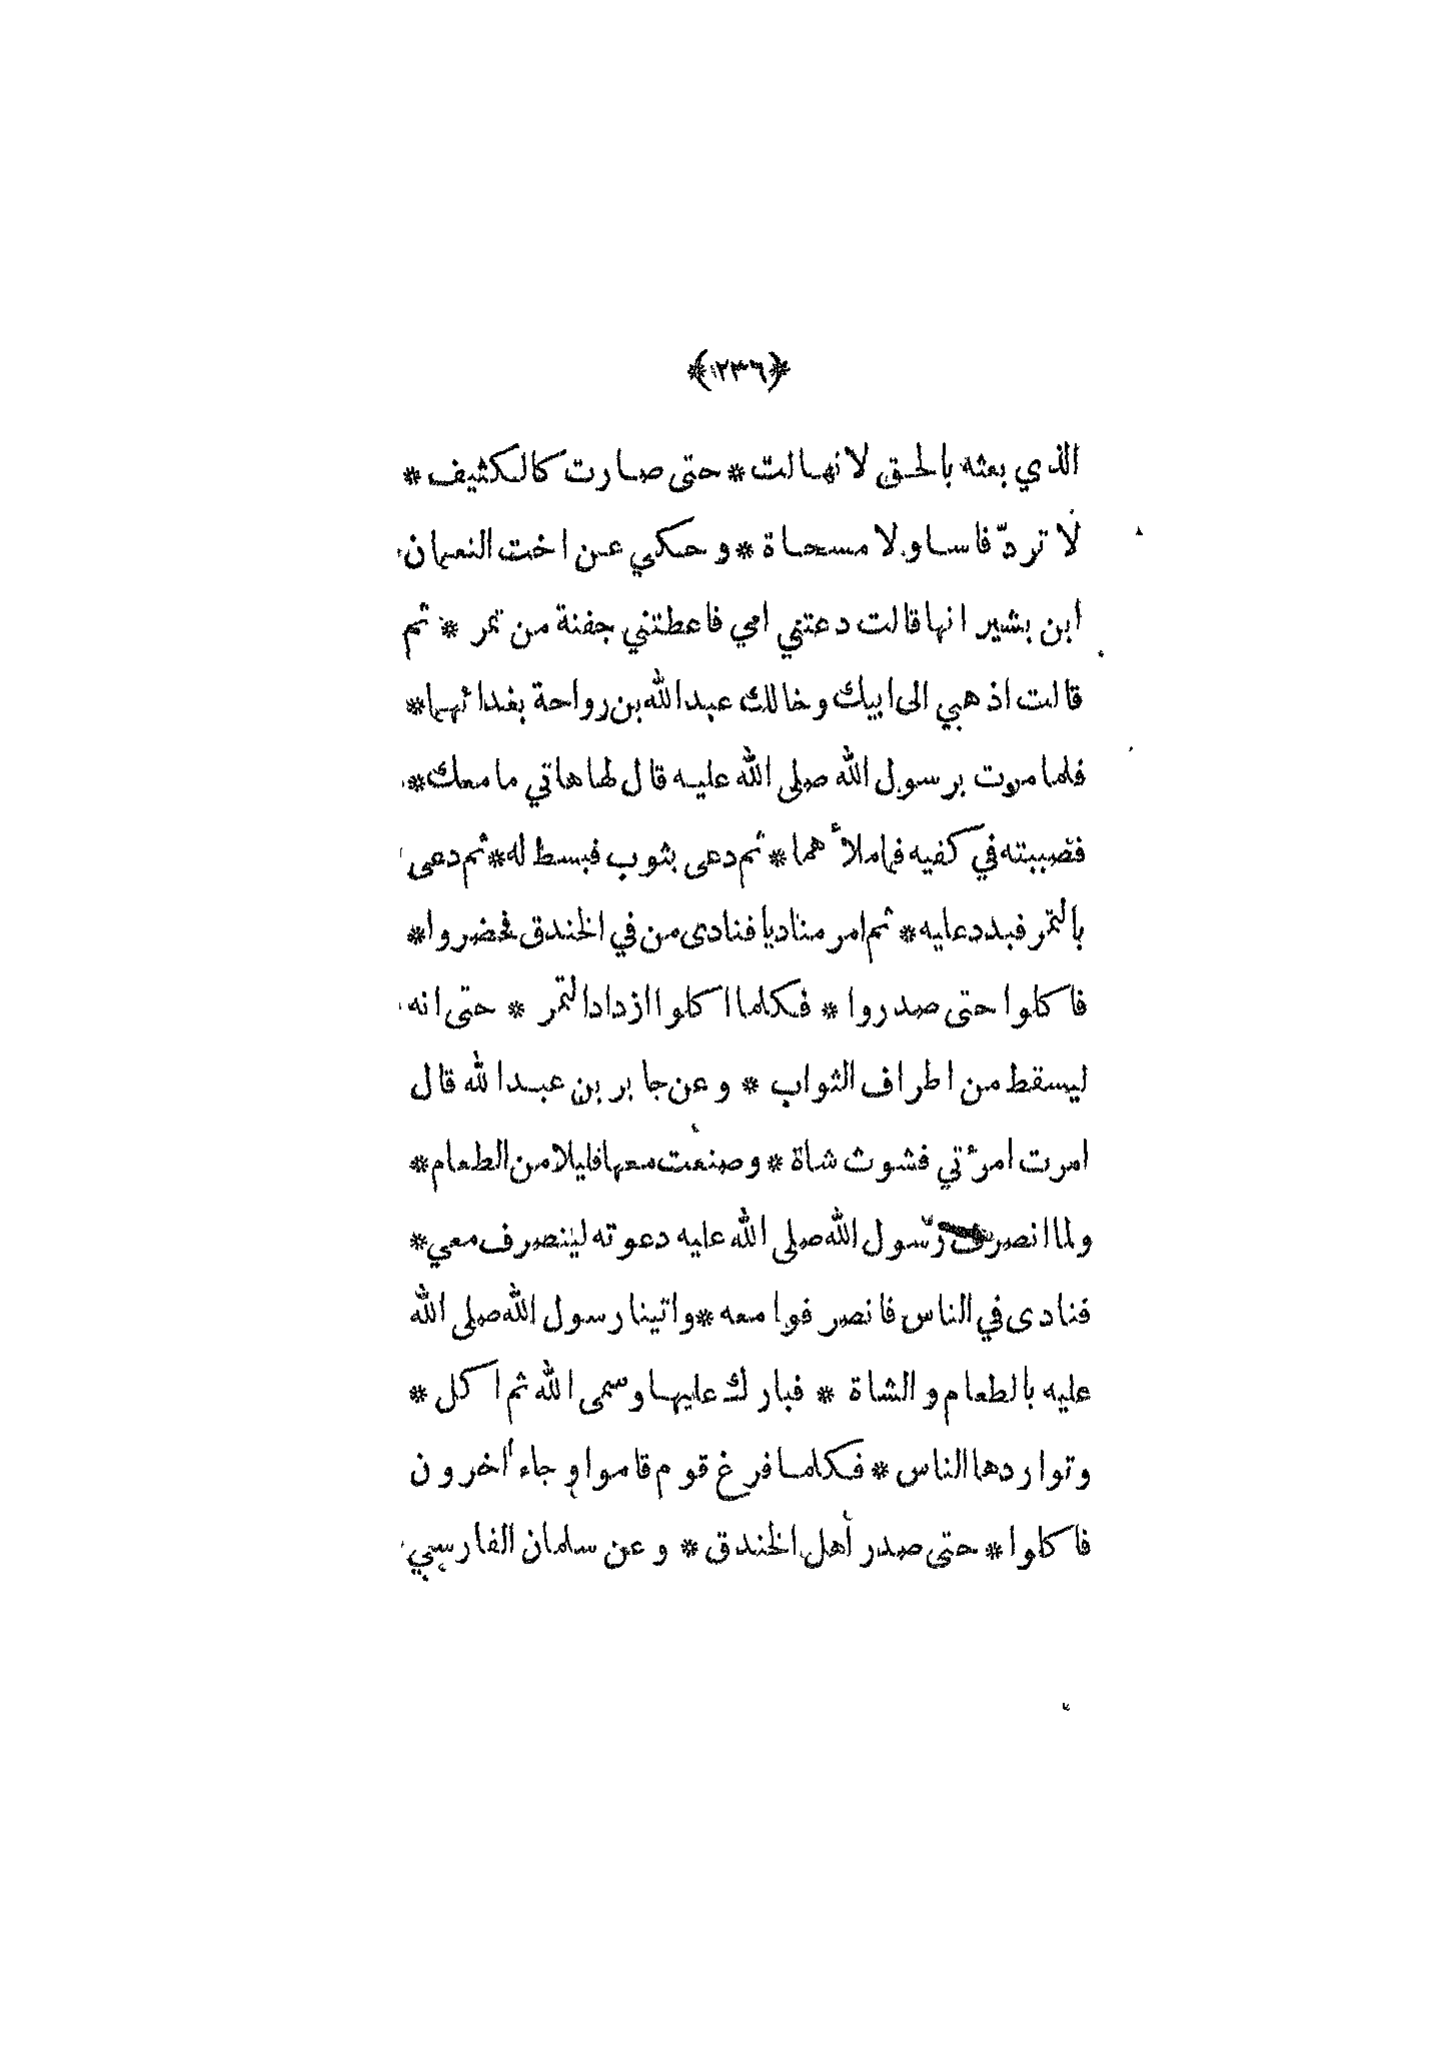 *(٢٣٦)*
الذي بعثه بالحق لانهالت * حتى صارت كالكثيف *
لا تردّ فاسا ولا مسحاة * وحكي عن اخت النعمان
ابن بشير انها قالت دعتني امي فاعطتني جفنة من تمر * ثم
قالت اذهبي الى ابيك وخالك عبد الله بن رواحة بغدائهما *
فلما مررت برسول الله صلى الله عليه قال لها هاتي ما معك *
فصببته في كفيه فما ملأهما * ثم دعى بثوب فبسط له * ثم دعى
بالتمر فبدد عليه * ثم امر مناديا فنادى من في الخندق فحضروا *
فاكلوا حتى صدروا * فكلما اكلوا ازداد التمر * حتى انه
ليسقط من اطراف الثواب * وعن جابر بن عبد الله قال
امرت امرئتي فشوث شاة * وصنعت معها قليلا من الطعام *
ولما انصرف رسول الله صلى الله عليه دعوته لينصرف معي *
فنادى في الناس فانصرفوا معه * واتينا رسول الله صلى الله
عليه بالطعام والشاة * فبارك عليها وسمى الله ثم اكل *
وتواردها الناس * فكلما فرغ قوم قاموا وجاء أخرون
فاكلوا * حتى صدر أهل الخندق * وعن سلمان الفارسي